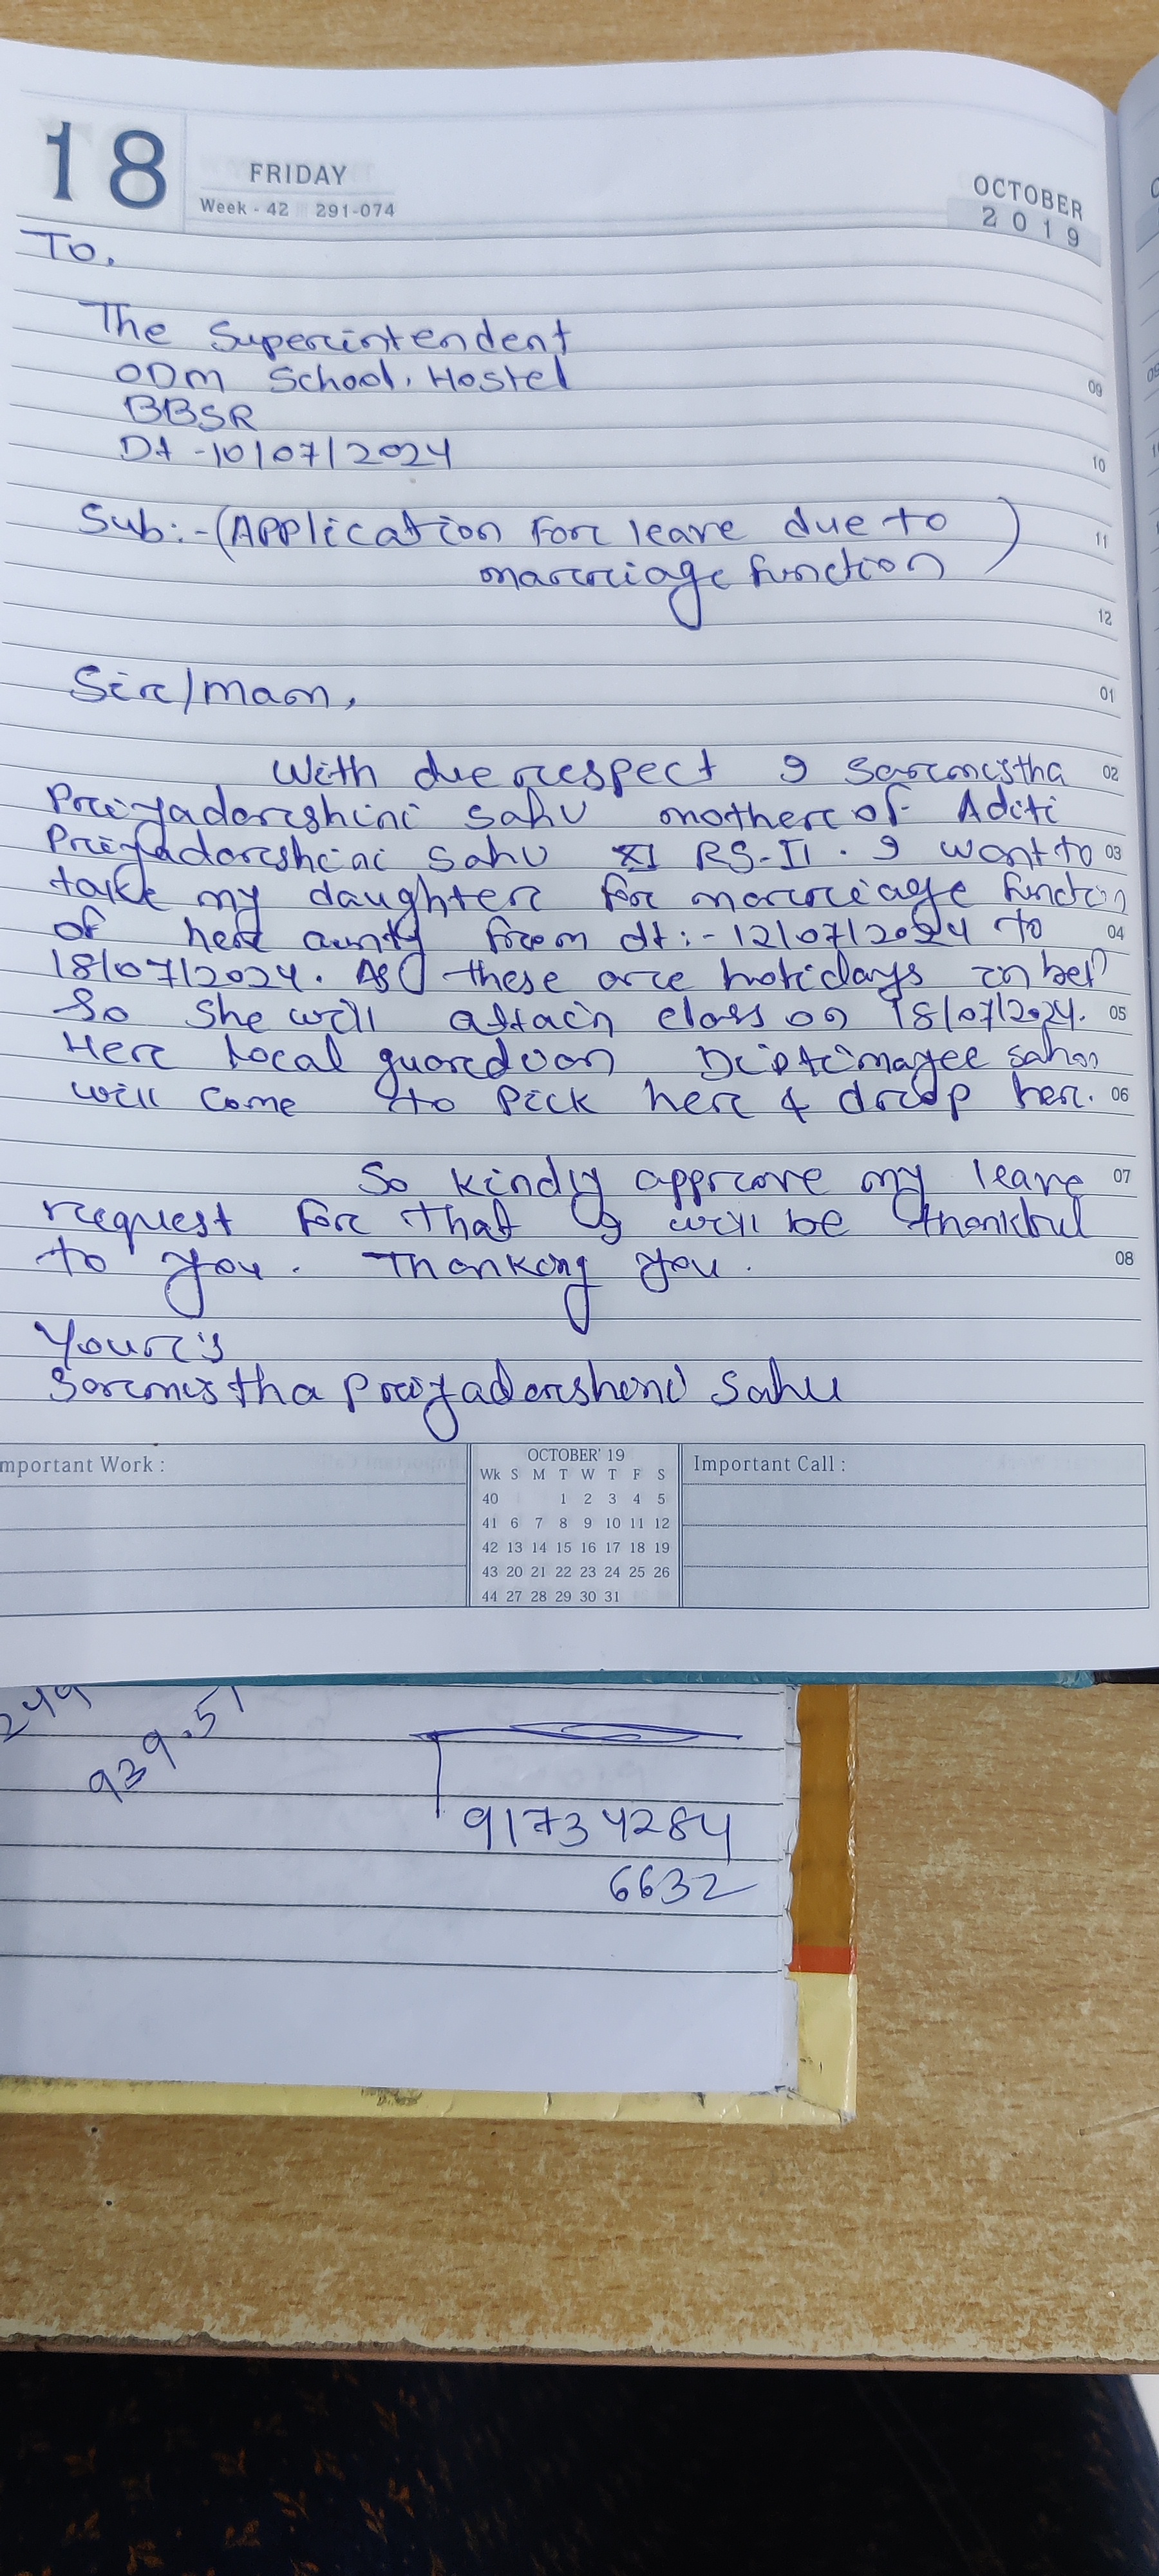 18
FRIDAY
Week - 42 291-074
OCTOBER
2019
To,
The Superintendent
ODM School, Hostel
BBSR
Dt -10/07/2024
Sub:-(Application For leave due to
marriage function)
Sir/mam,
With due respect I Sarmistha
Priyadarshini Sahu mother of Aditi
Priyadarshini Sahu XI RS-II. I want to
take my daughter for marriage function
of her aunty from dt:-12/07/2024 to
18/07/2024. As these are holidays in betn
So She will attain class on 18/07/2024.
Her Local guardian Diptimayee Sahoo
will come to Pick her & drop her.
So kindly approve my leave
request for that I will be thankful
to you. Thanking you.
Your's
Sarmistha Priyadarshini Sahu
09
10
11
12
01
02
03
04
05
06
07
08
mportant Work :
OCTOBER' 19
Wk S M T W T F S
40 1 2 3 4 5
41 6 7 8 9 10 11 12
42 13 14 15 16 17 18 19
43 20 21 22 23 24 25 26
44 27 28 29 30 31
Important Call :
939.51
91734284
6632